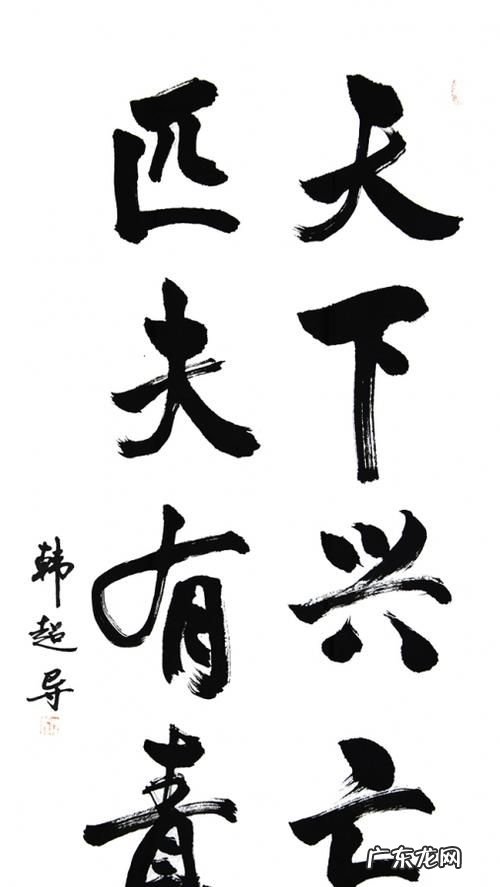 天下兴亡
匹夫有責
韩超导
广东龙网